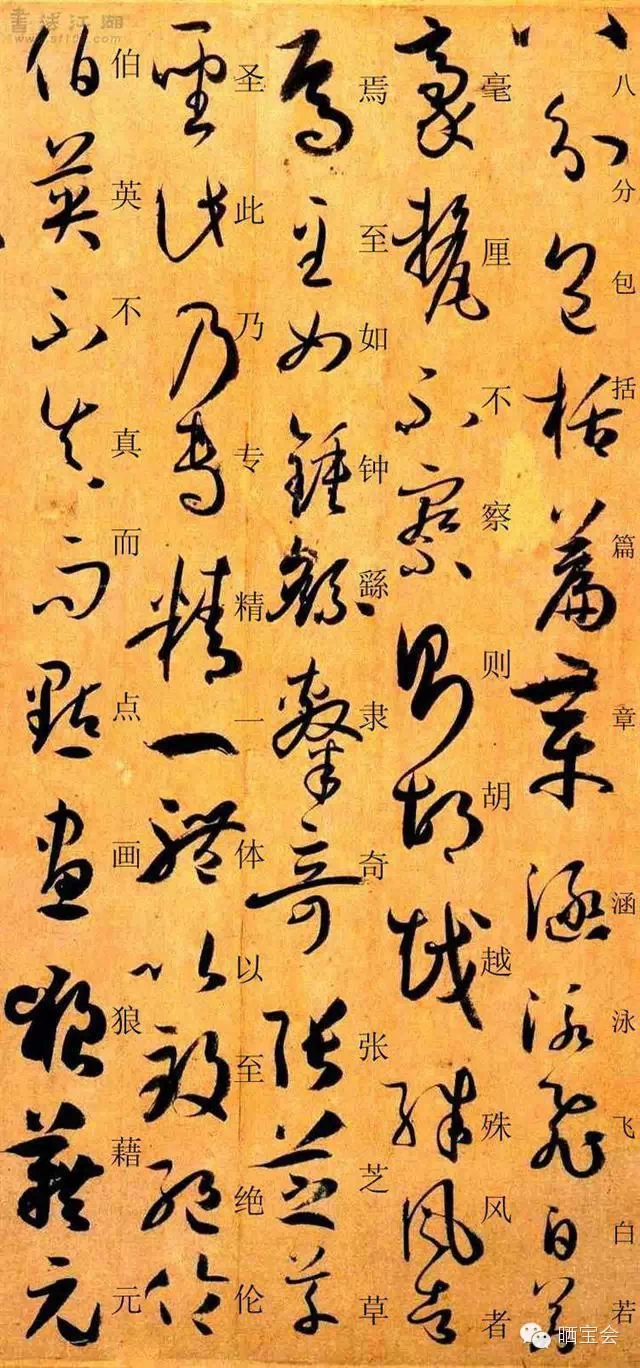 八分包括篇章涵泳飞白若
毫厘不察则胡越殊风者
焉至如钟繇隶奇张芝草
圣此乃专精一体以至绝伦
伯英不真而点画狼藉元
書法江湖
晒宝会